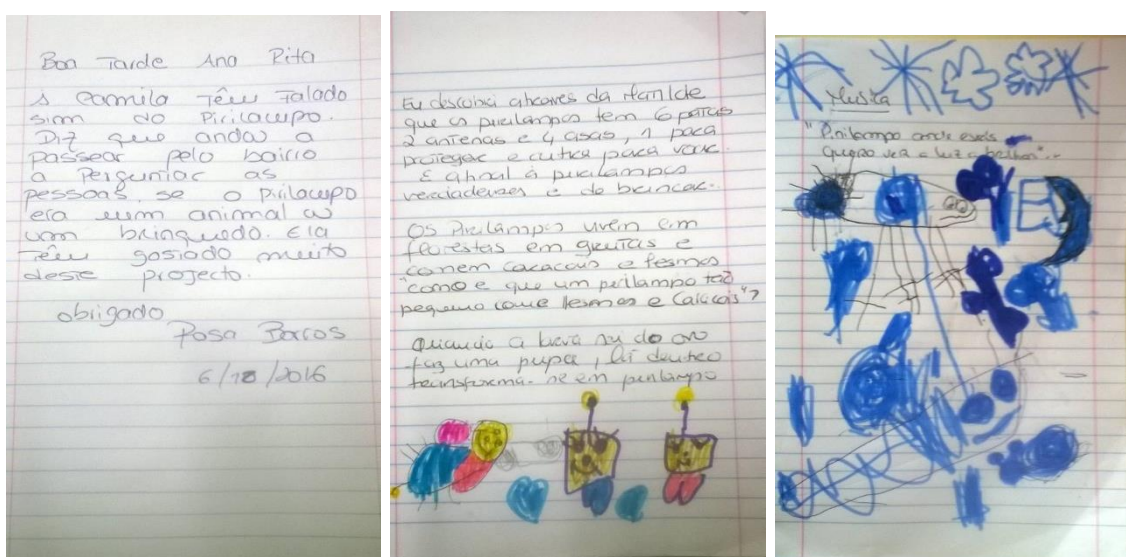 Boa Tarde Ana Rita
A Camila Têm Falado
sim do Pirilampo.
Diz que andou a
passear pelo bairro
a Perguntar as
pessoas, se o Pirilampo
era um animal ou
um brinquedo. Ela
Têm gostado muito
deste projecto.
obrigado
Rosa Barros
6/10/2016
Eu descobri através da Matilde
que os pirilampos tem 6 patas
2 antenas e 4 asas, 1 para
proteger e outra para voar.
E afinal à pirilampos
verdadeiros e de brincar.
Os Pirilampos vivem em
florestas em grutas e
comem caracois e lesmas
"como e que um pirilampo tão
pequeno come lesmas e Caracois"?
Quando a larva sai do ovo
faz uma pupa, lá dentro
transforma-se em pirilampo
Musica
"Pirilampo onde estás
Quero ver a luz a brilhar"...